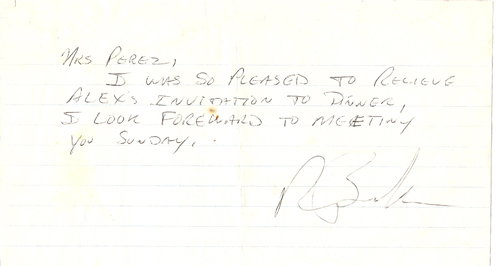 Mrs Perez,
I was so pleased to relieve
Alex's invitation to dinner,
I look foreward to meeting
you Sunday.